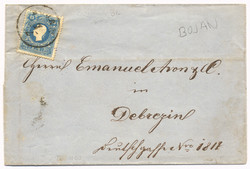 BOJAN
Herrn Emanuel Aron & C.
in
Debrezin
Nro 1811